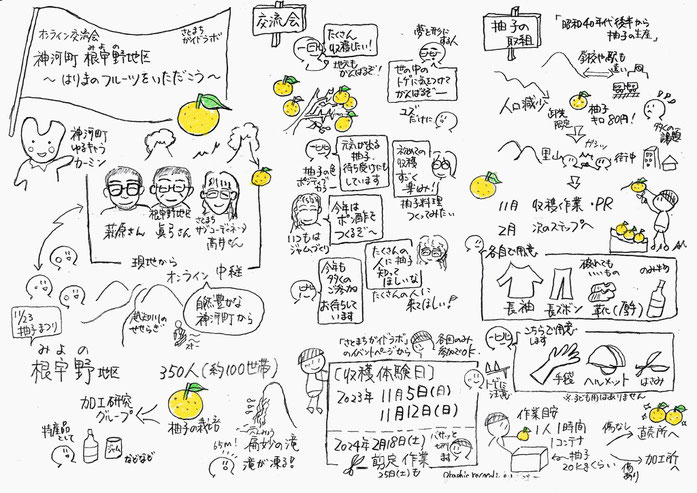 オンライン交流会
さとまち
ガイドラボ
みよの
神河町 根宇野地区
〜はりまのフルーツをいただこう〜
神河町
ゆるキャラ
カーミン
萩原さん
根宇野地区
眞弓さん
さとまち
サブコーディネータ
高井さん
現地から
オンライン中継
自然豊かな
神河町から
越知川の
せせらぎ
11/23
柚子まつり
みよの
根宇野地区
350人(約100世帯)
加工研究
グループ
特産品
として
ジャム
などなど
柚子の栽培
65m!
扁妙の滝
滝が凍る!
交流会
たくさん
収穫したい!
地元も
がんばるぞ!
夢を形に
する人
世の中の
トゲに気をつけて
がんばるぞー
ユズ
だけに
元気が出る
柚子、
待ち受けにも
しています
柚子の色
ポジティブ
カラー
初めての
収穫
すごく
楽しみ!
柚子料理
つくってみたい
いつもは
ジャムづくり
今年は
ポン酢を
つくるぞ〜
たくさんの
人に柚子
知って
ほしいな
たくさんの人に
来てほしい!
今年も
多くの
ご参加
お待ちして
います
「さとまちガイドラボ」
のイベントページから
各回のみ
参加でもOK
[収穫体験日]
2023年 11月5日(日)
11月12日(日)
2024年2月18日(土)
剪定作業
25日(土)も
バサッと
切ります
柚子
の取組
「昭和40年代後半から
柚子の生産」
学校や駅も
遠い
人口減少
柚子
キロ80円!
多くの
課題
里山
ガシッ
街中
11月 収穫作業・PR
2月 次のステップへ
各自で用意
汚れても
いいもの
のみ物
長袖
長ズボン
靴(厚手)
こちらで用意
します
手袋
ヘルメット
はさみ
※子ども用はありません
トゲに
注意
作業目安
1人1時間
1コンテナ
柚子
20kgくらい
傷なし
直売所へ
傷
あり
加工所
へ